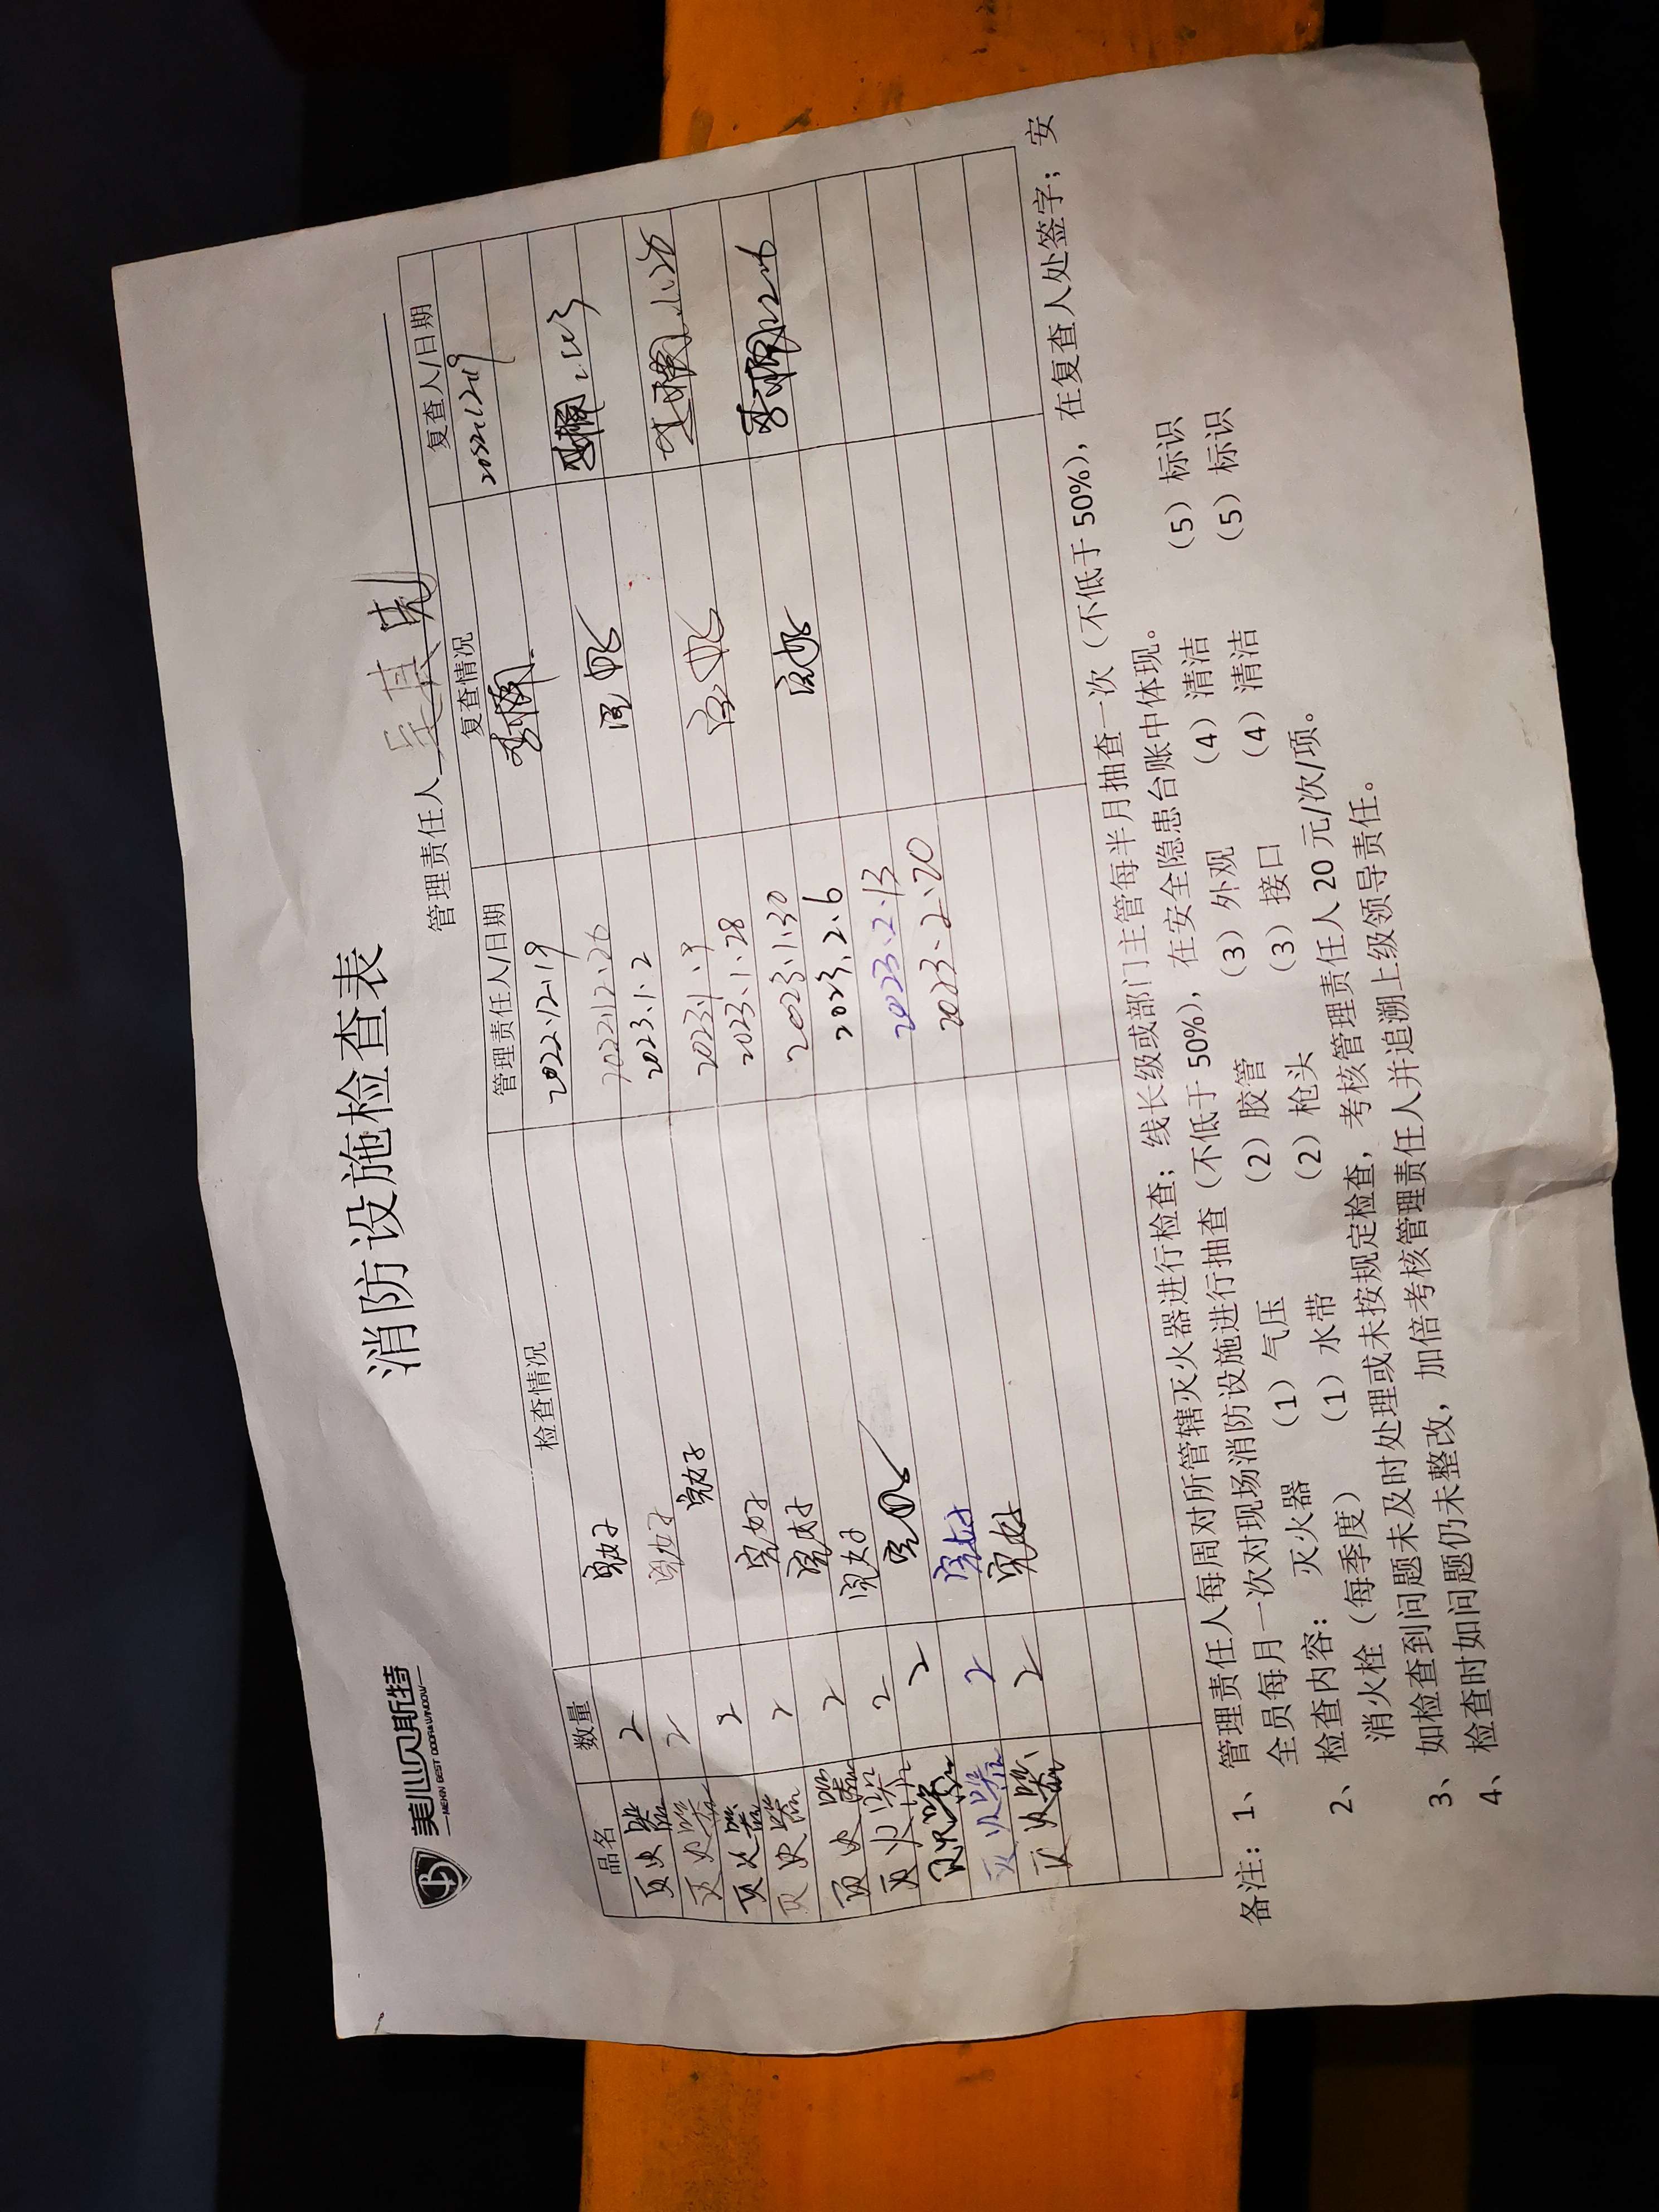 美心贝斯特
MEXIN BEST DOOR&WINDOW
消防设施检查表
管理责任人
品名 数量 检查情况 管理责任人/日期 复查情况 复查人/日期
灭火器 2 完好 2022.12.19
灭火器 2 完好 2022.12.26
灭火器 2 完好 2023.1.2 完好
灭火器 2 完好 2023.1.9
灭火器 2 完好 2023.1.28 完好 1.28
灭火器 2 完好 2023.1.30
灭火器 2 完好 2023.2.6 完好 2.6
灭火器 2 完好 2023.2.13
灭火器 2 完好 2023.2.20
备注:1、管理责任人每周对所管辖灭火器进行检查;线长级或部门主管每半月抽查一次(不低于50%),在复查人处签字;安
全员每月一次对现场消防设施进行抽查(不低于50%),在安全隐患台账中体现。
2、检查内容: 灭火器 (1)气压 (2)胶管 (3)外观 (4)清洁 (5)标识
消火栓(每季度) (1)水带 (2)枪头 (3)接口 (4)清洁 (5)标识
3、如检查到问题未及时处理或未按规定检查,考核管理责任人20元/次/项。
4、检查时如问题仍未整改,加倍考核管理责任人并追溯上级领导责任。